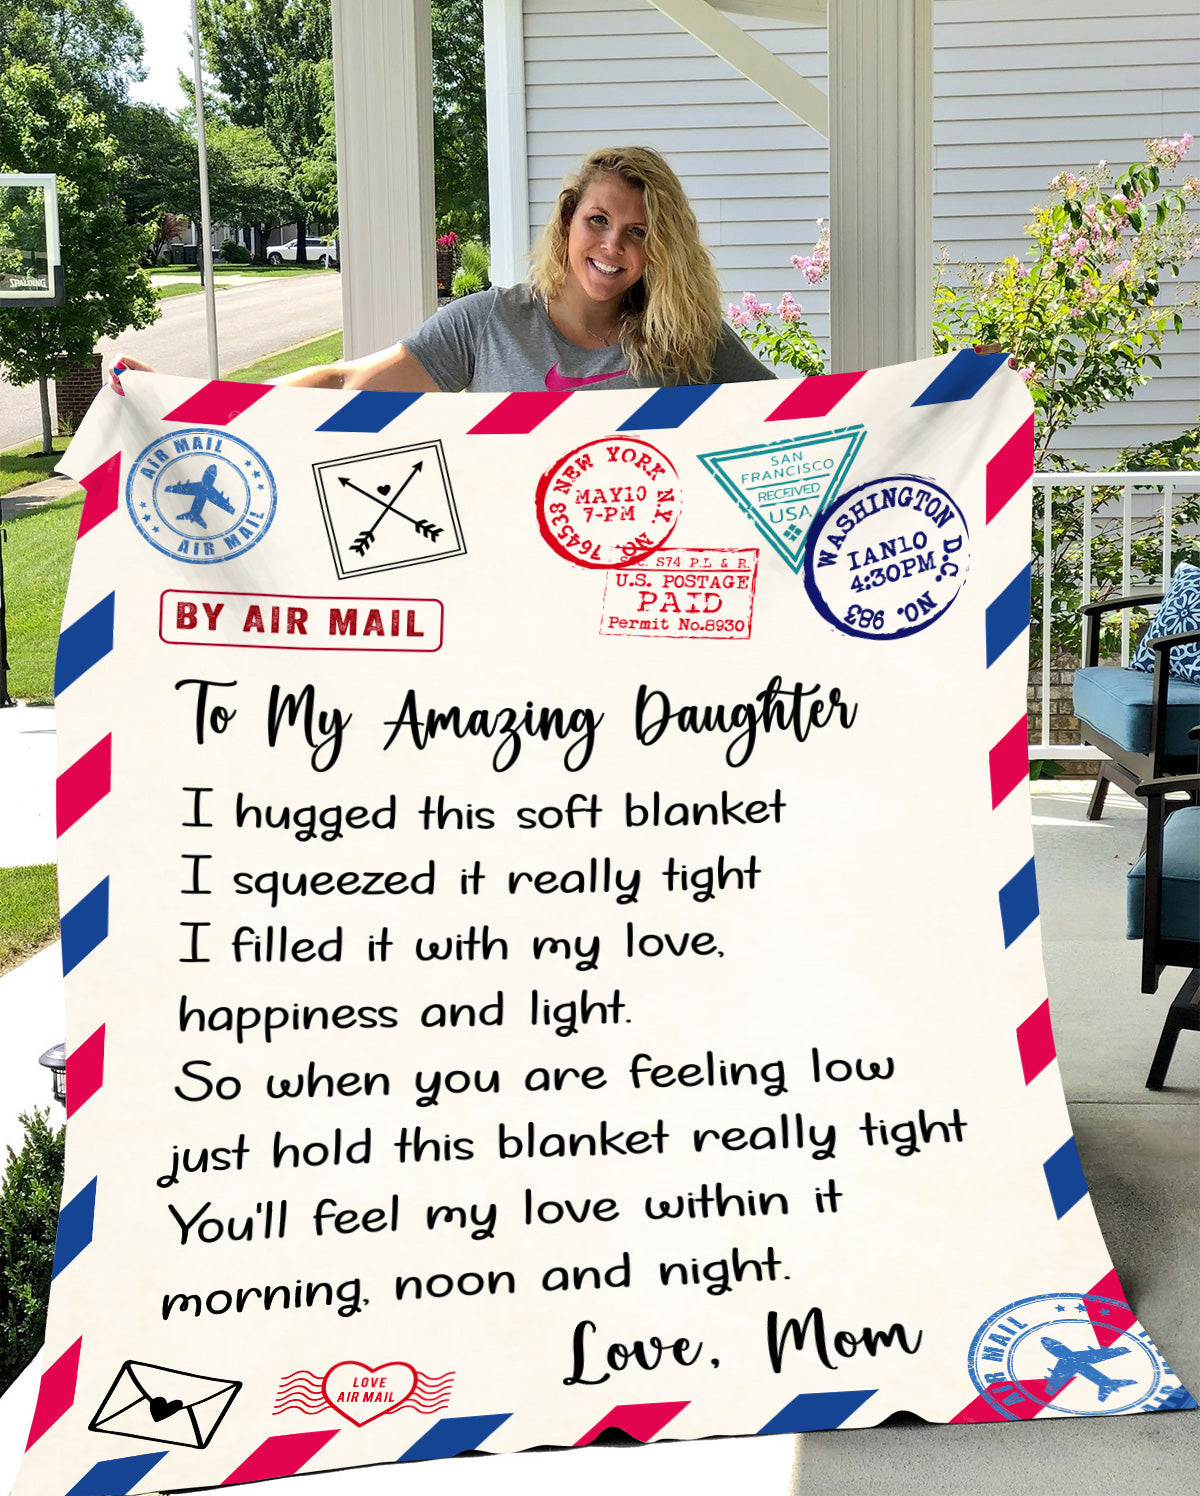 SPALDING
AIR MAIL
AIR MAIL
NEW YORK N.Y.
MAY10
7-PM
NO. 764538
SAN
FRANCISCO
RECEIVED
USA
WASHINGTON D.C.
IAN10
4:30PM
NO. 983
S74 P.L & R.
U.S. POSTAGE
PAID
Permit No.8930
BY AIR MAIL
To My Amazing Daughter
I hugged this soft blanket
I squeezed it really tight
I filled it with my love,
happiness and light.
So when you are feeling low
just hold this blanket really tight
You'll feel my love within it
morning, noon and night.
Love, Mom
LOVE
AIR MAIL
AIR MAIL